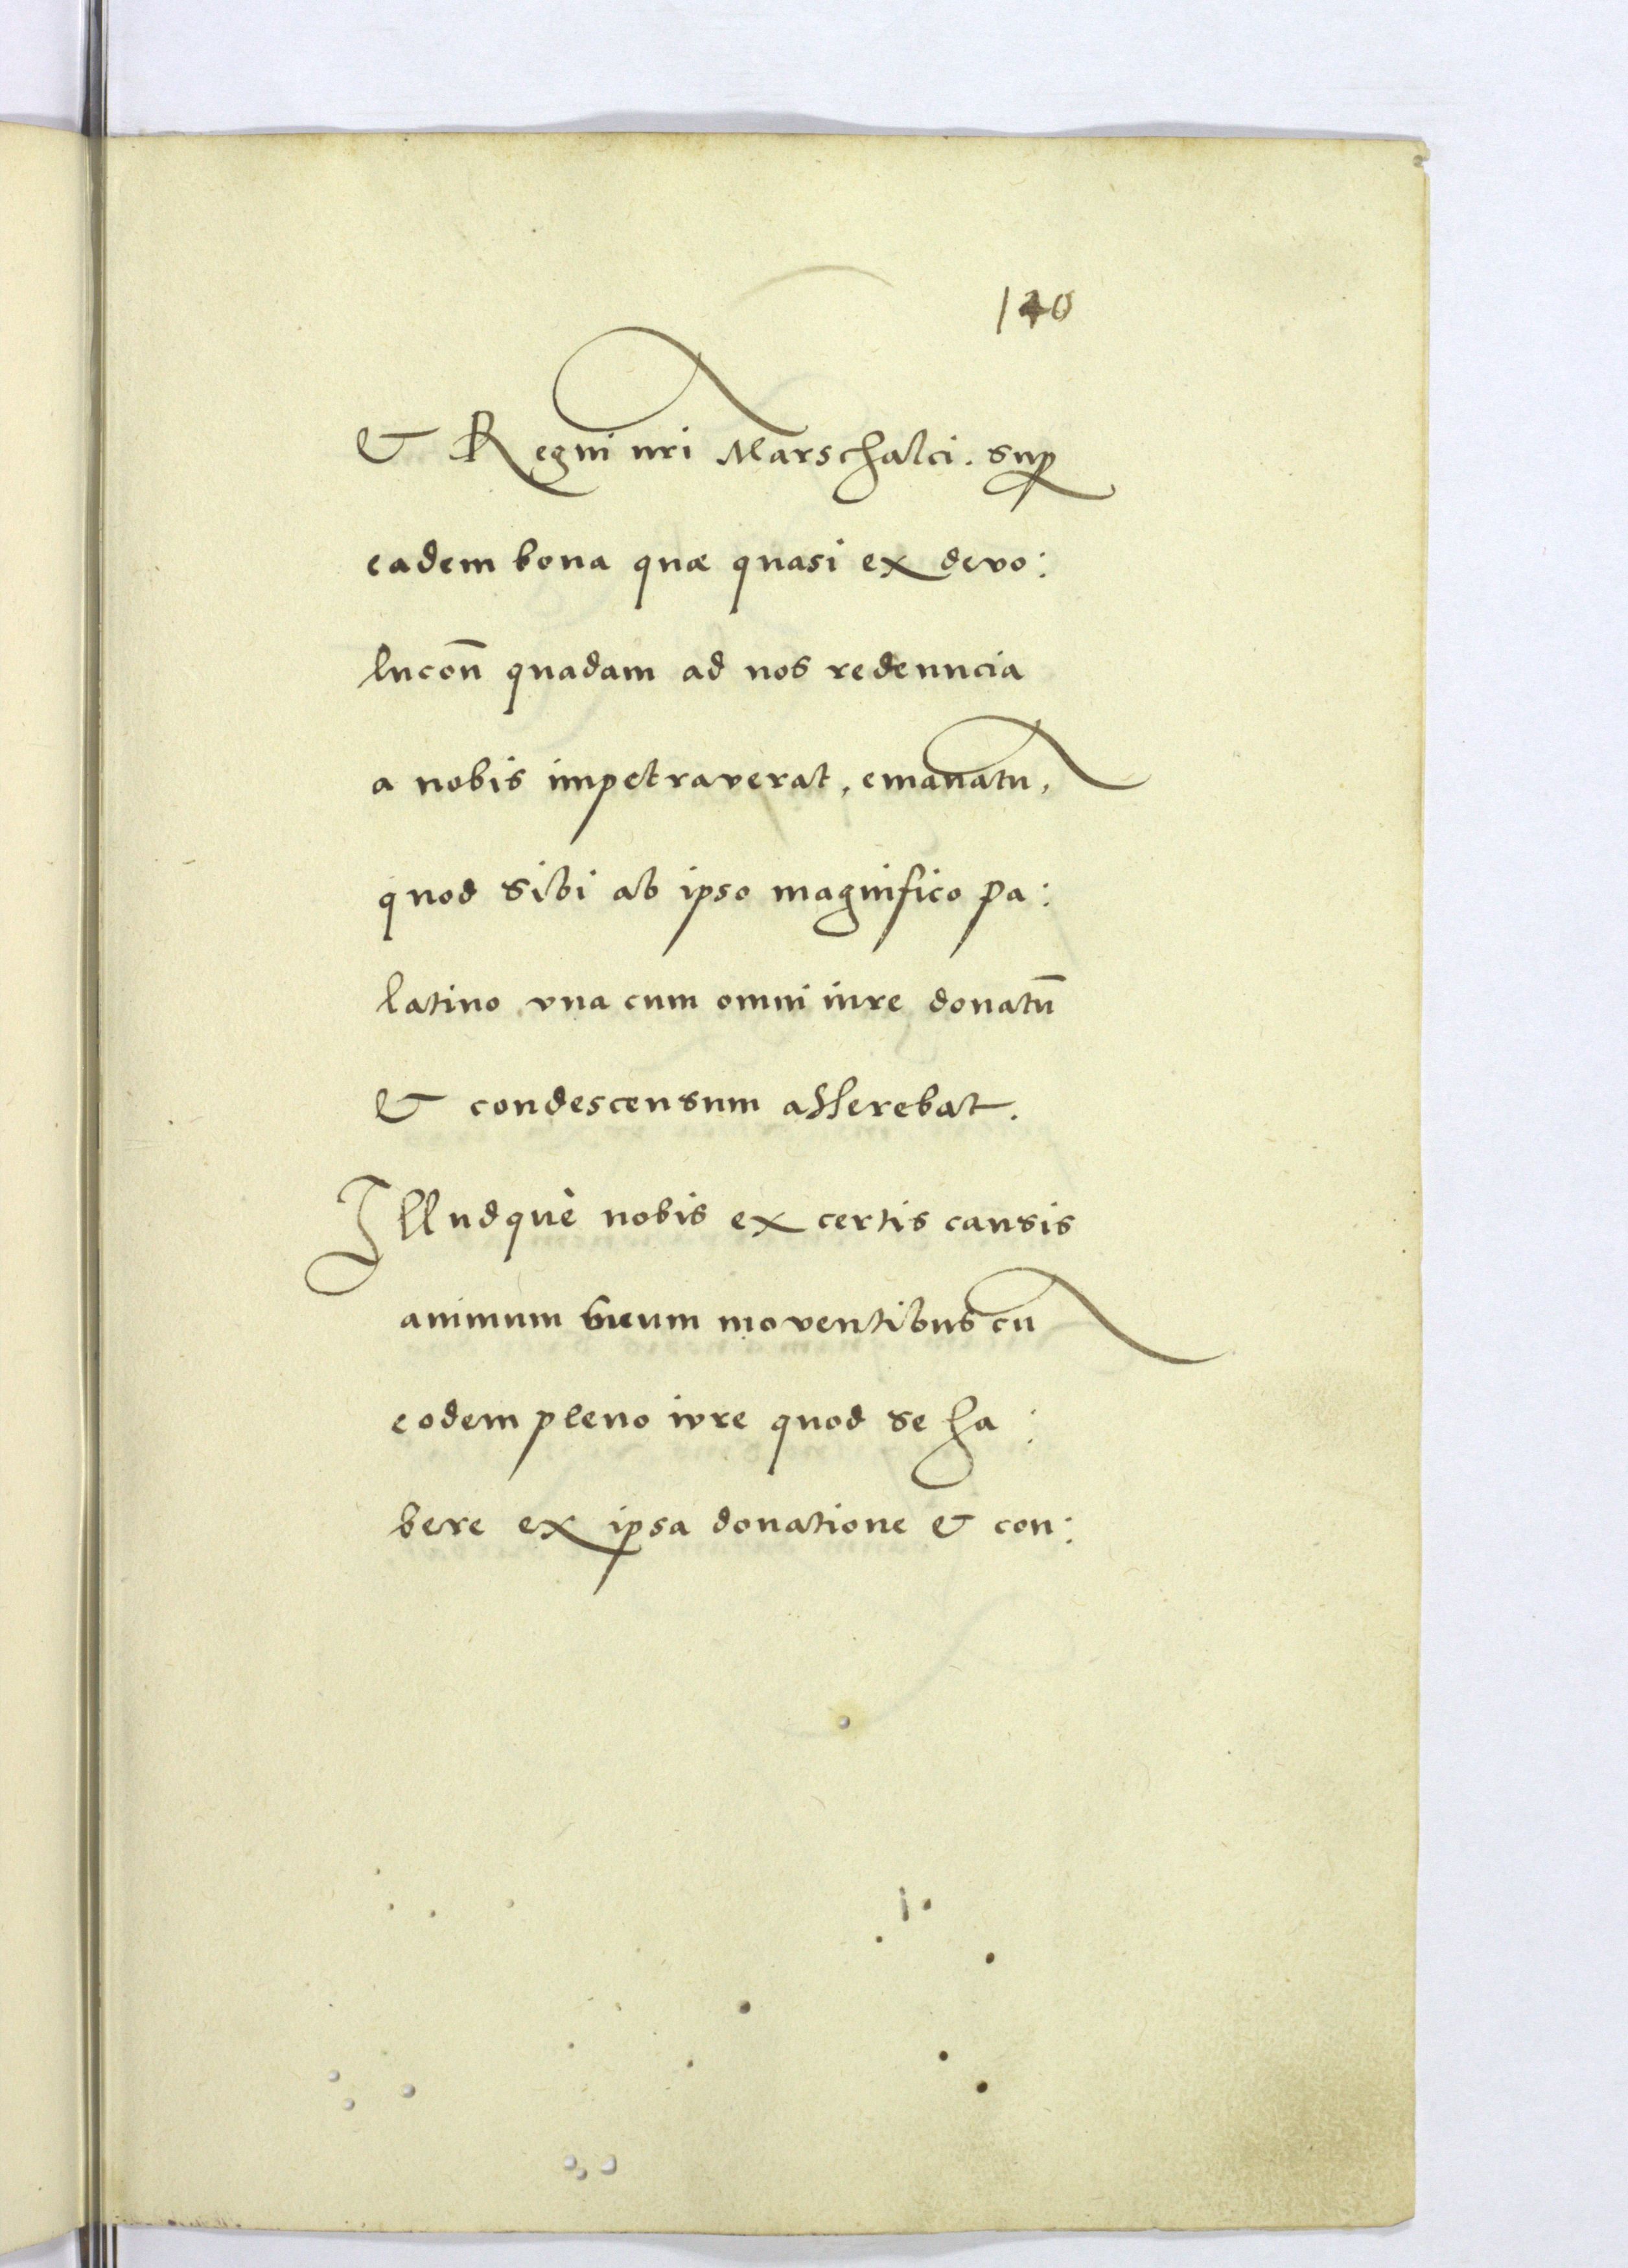 140
& Regni nr̄i Marschalci. sup
eadem bona quæ quasi ex devo:
lucōn quadam ad nos redeuncia
a nobis impetraverat, emanatu,
quod sibi ab ipso magnifico pa:
latino vna cum omni iure donatū
& condescensum asserebat.
Illudquè nobis ex certis causis
animum suum moventibus cu
eodem pleno iure quod se ha:
bere ex ipsa donatione & con: